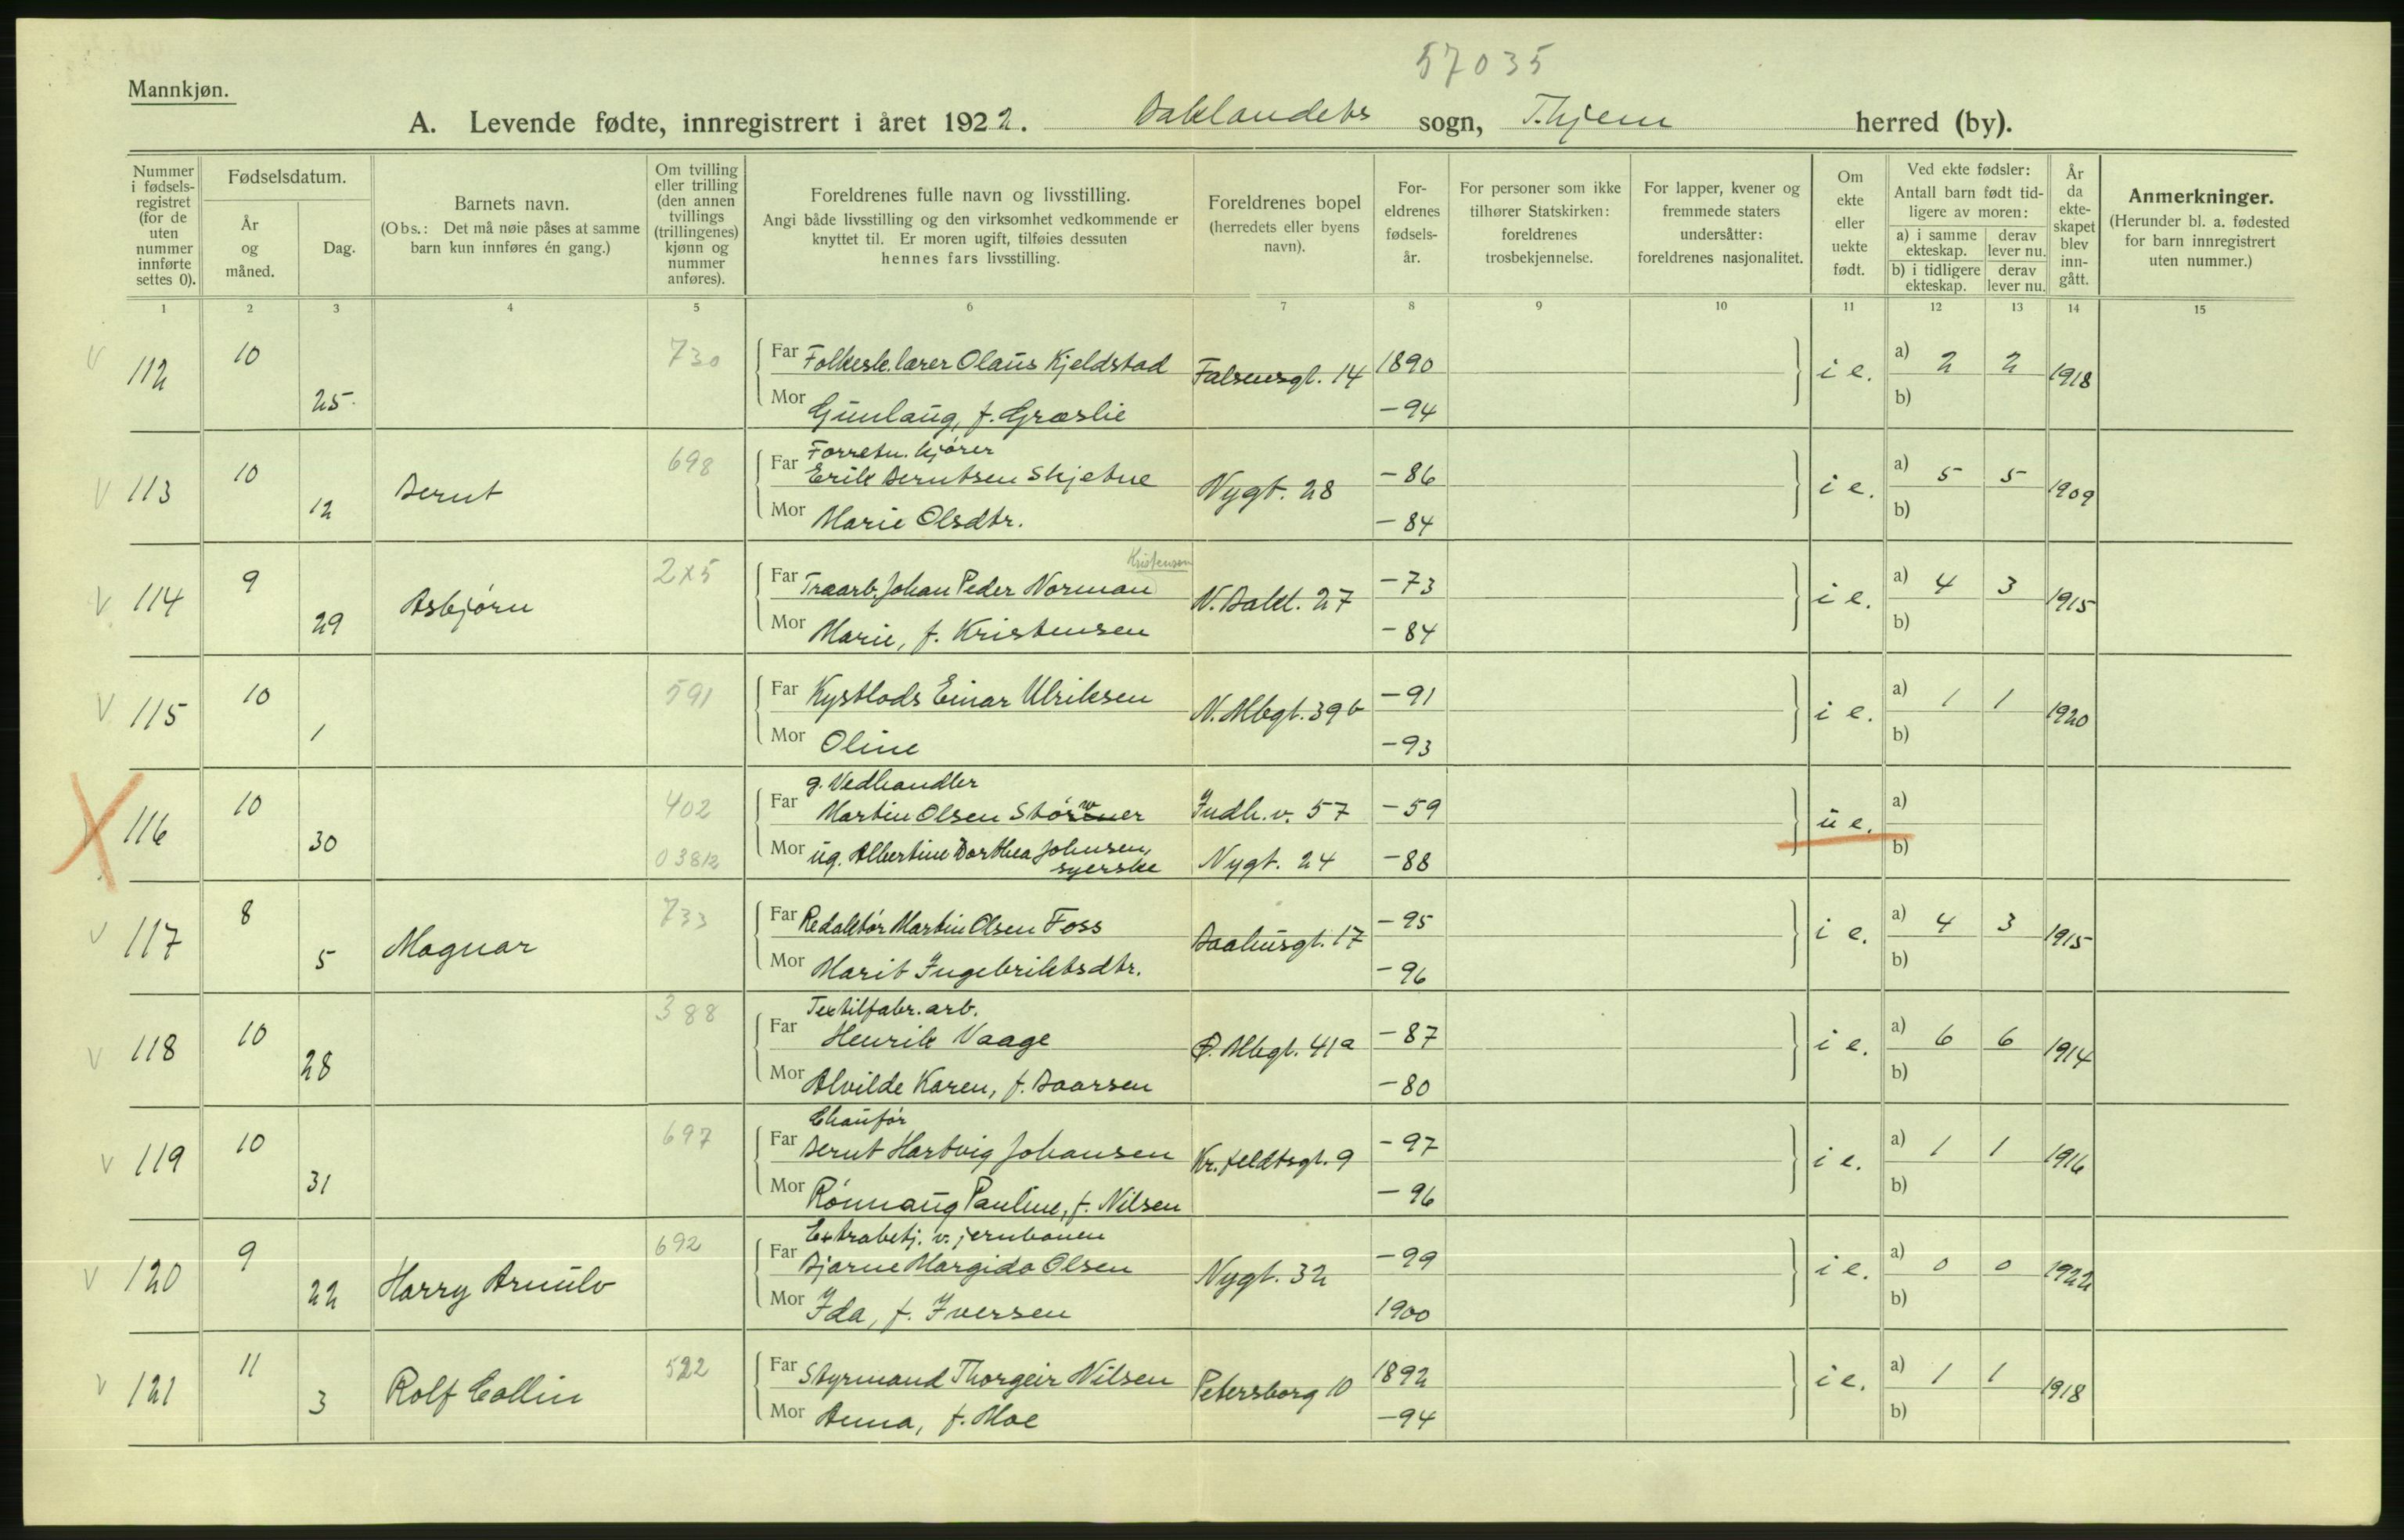 57035
Mannkjøn.
A. Levende fødte, innregistrert i året 1922. Baklandets sogn, T.hjem herred (by).
Nummer i fødsels- registret (for de uten nummer innførte settes 0).
Fødselsdatum.
År og måned.
Dag.
Barnets navn.
(Obs.: Det må nøie påses at samme barn kun innføres én gang.)
Om tvilling eller trilling (den annen tvillings (trillingenes) kjønn og nummer anføres).
Foreldrenes fulle navn og livsstilling.
Angi både livsstilling og den virksomhet vedkommende er knyttet til. Er moren ugift, tilføies dessuten hennes fars livsstilling.
Foreldrenes bopel
(herredets eller byens navn).
For- eldrenes fødsels- år.
For personer som ikke tilhører Statskirken: foreldrenes trosbekjennelse.
For lapper, kvener og fremmede staters undersåtter: foreldrenes nasjonalitet.
Om ekte eller uekte født.
Ved ekte fødsler:
Antall barn født tid- ligere av moren:
a) i samme ekteskap.
derav lever nu.
b) i tidligere ekteskap.
derav lever nu.
År da ekte- skapet blev inn- gått.
Anmerkninger.
(Herunder bl. a. fødested for barn innregistrert uten nummer.)
1 2 3 4 5 6 7 8 9 10 11 12 13 14 15
V 112 10 25. 730
Far Folkesk.lærer Olaus Kjeldstad Falsensgt. 14 1890 i e. a) 2 2 1918
Mor Gunlaug, f. Græslie -94 b)
V 113 10 12 Bernt 698
Forretn. kjører
Far Erik Berntsen Skjetne Nygt. 28 -86 i e. a) 5 5 1909
Mor Marie Olsdtr. -84 b)
V 114 9 29 Asbjörn 2x5
Kristensen
Far Træarb. Johan Peder Norman N. Bakl. 27 -73 i e. a) 4 3 1915
Mor Marie, f. Kristensen -84 b)
V 115 10 1 591
Far Kystlods Einar Ulriksen N. Albgt. 39 b -91 i e. a) 1 1 1920
Mor Oline -93 b)
X 116 10 30 402
g. Vedhandler
Far Martin Olsen Indh.v. 57 -59 u e. a)
03812
Mor ug. Albertine Dorthea Johnsen, syerske Nygt. 24 -88 b)
V 117 8 5 Magnar 733
Far Redaktör Martin Olsen Foss Baahusgt. 17 -95 i e. a) 4 3 1915
Mor Marit Ingebriktsdtr. -96 b)
V 118 10 28 388
Textilfabr. arb.
Far Henrik Vaage Ø. Albgt. 41a -87 i e. a) 6 6 1914
Mor Alvilde Karen, f. Baarsen -80 b)
V 119 10 31 697
Chauför
Far Bernt Hartvig Johansen Kr. feldtsgt. 9 -97 i e. a) 1 1 1916
Mor Rönnaug Pauline, f. Nilsen -96 b)
V 120 9 22 Harry Arnulv 692
Extrabetj. v. jernbanen
Far Bjarne Margido Olsen Nygt. 32 -99 i e. a) 0 0 1922
Mor Ida, f. Iversen 1900 b)
V 121 11 3 Rolf Collin 522
Far Styrmand Thorgeir Nilsen Petersborg 10 1892 i e. a) 1 1 1918
Mor Anna, f. Moe -94 b)